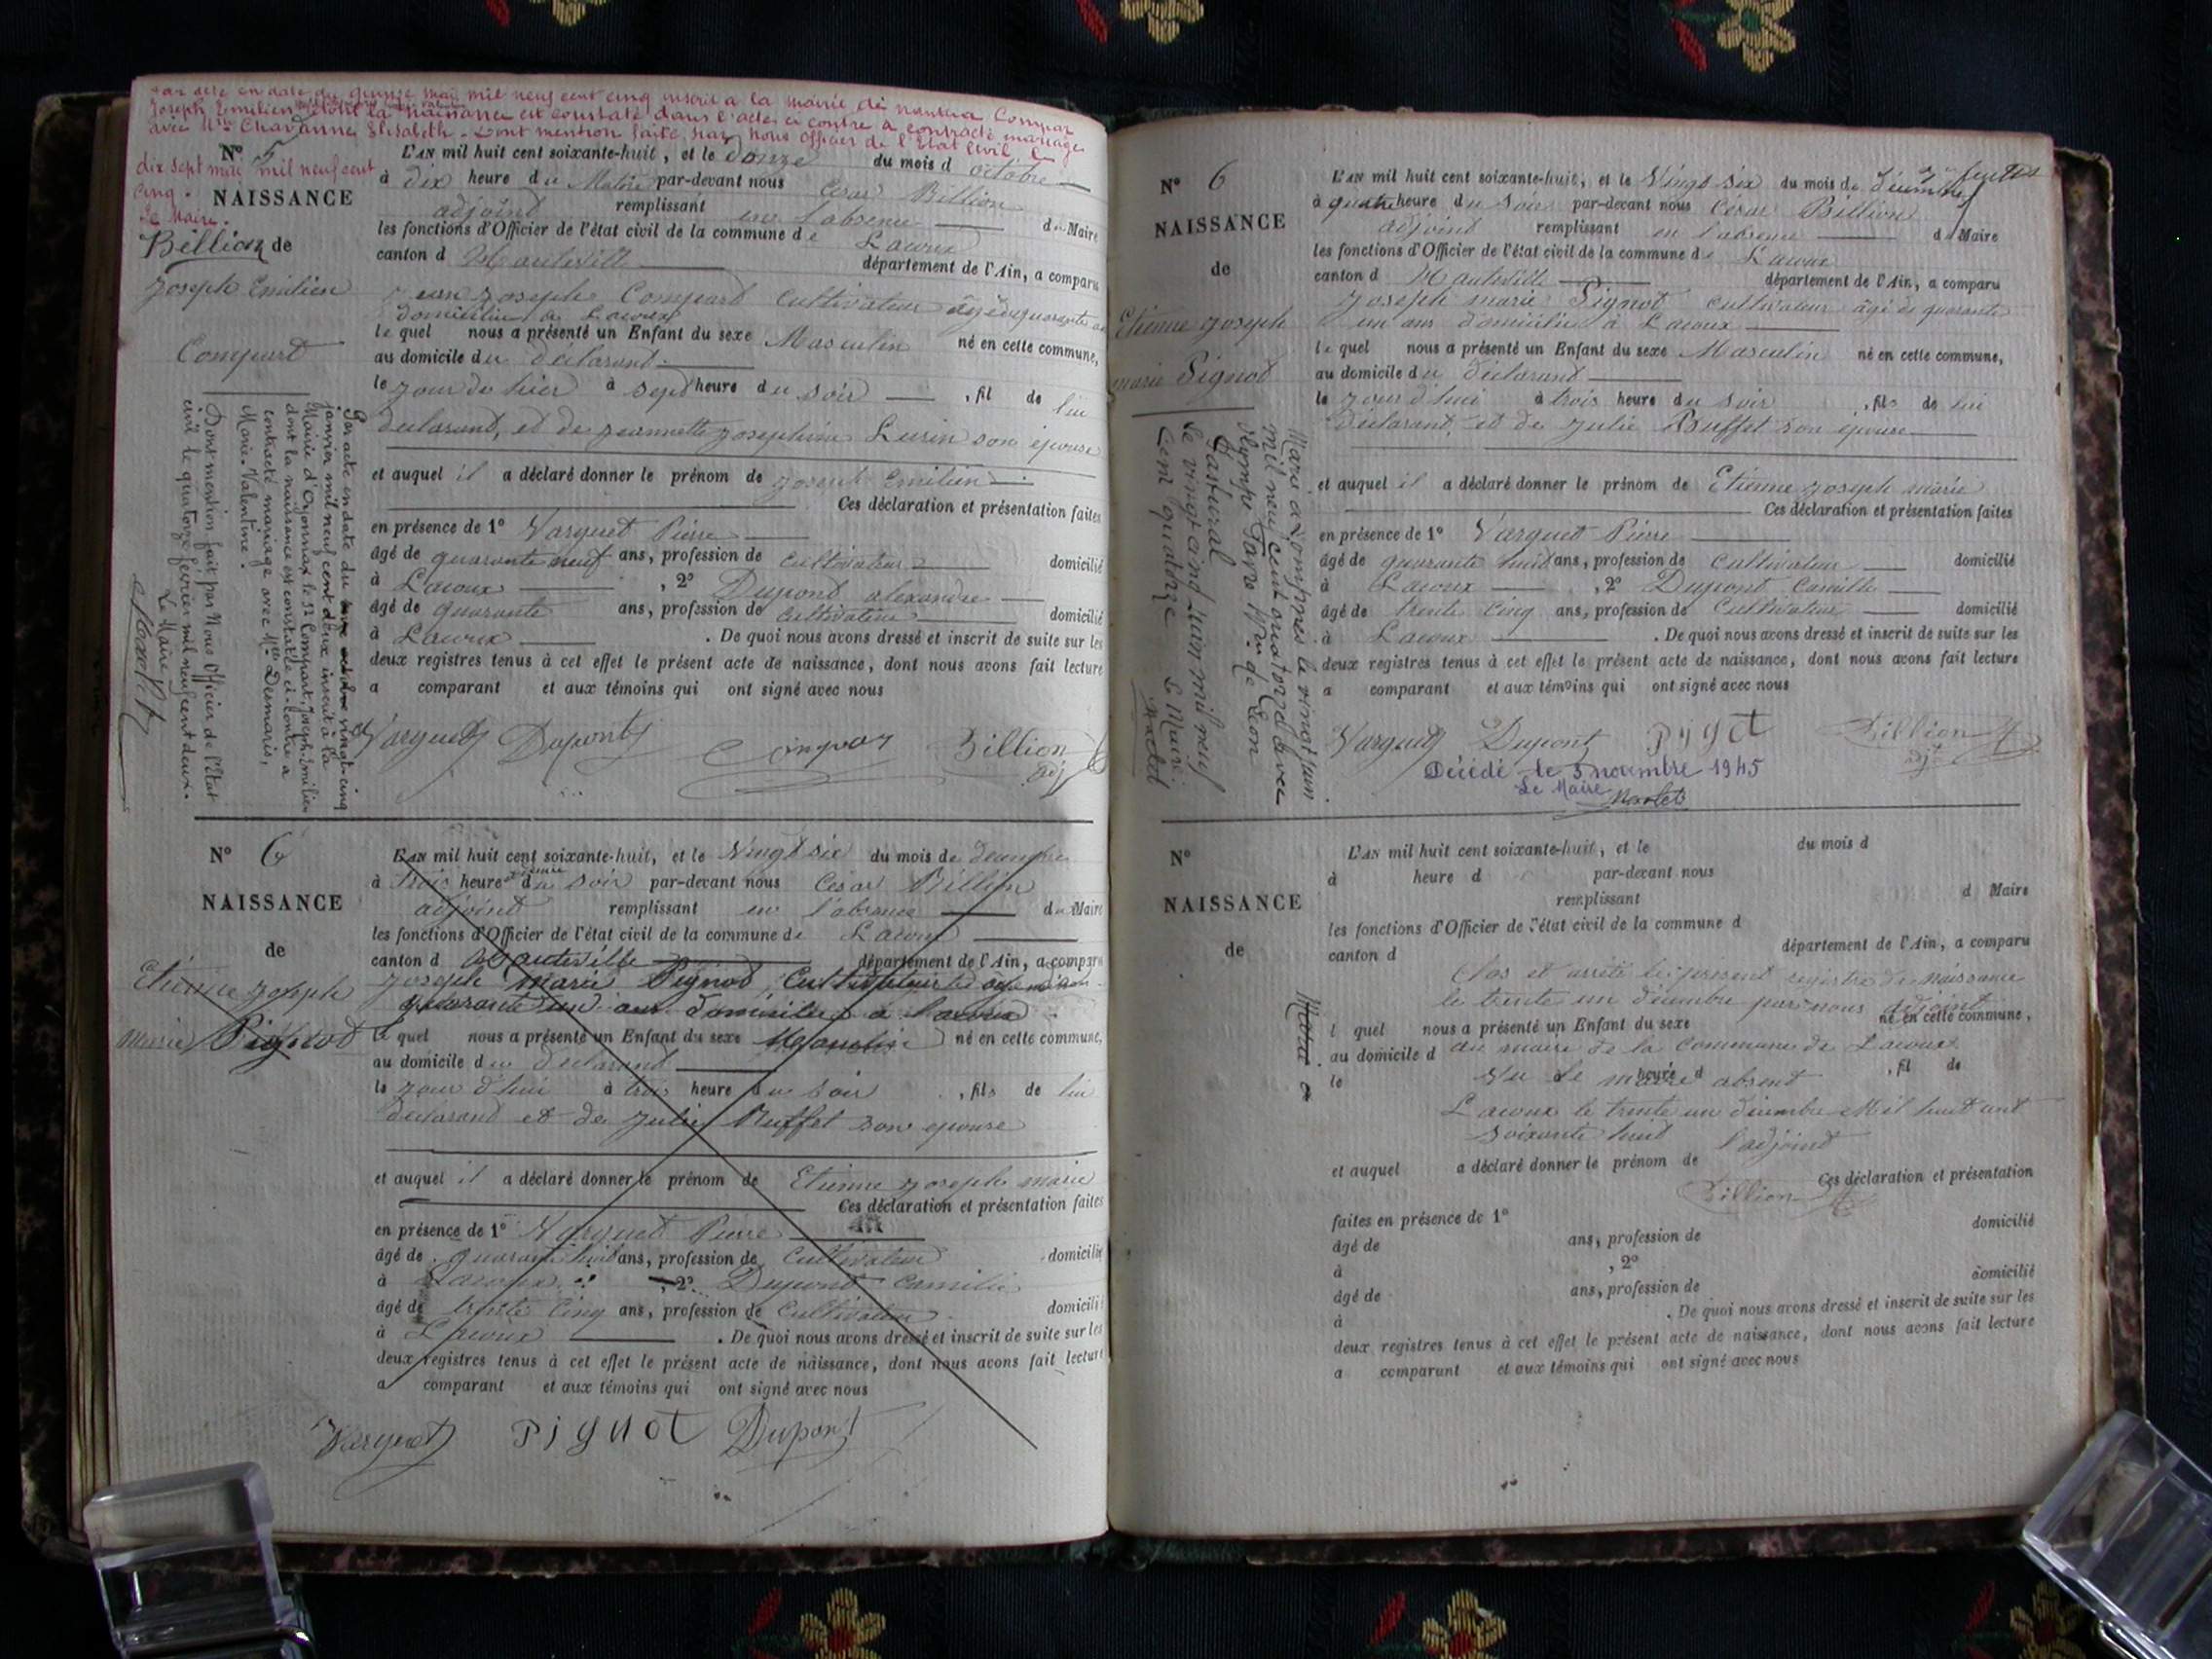 par acte en date du quinze mai mil neuf cent cinq inscrit a la mairie de Nantua Compar
Joseph Emilien dont la naissance est constaté dans l'acte ci contre a contracté mariage
avec Mlle Chavanne Elisabeth. Dont mention faite par Nous Officier de l'Etat Civil le
dix sept mai mil neuf cent
cinq.
Le Maire.
Billion
N° 5
NAISSANCE
de
Joseph Emilien
Compart
Par acte en date du vingt-cinq
janvier mil neuf cent deux inscrit à la
Mairie d'Oyonnax le Sr Compart, Joseph-Emilien
dont la naissance est constatée ci-contre a
contracté mariage avec Mlle Desmaris,
Marie-Valentine.
Dont mention fait par Nous Officier de l'Etat
civil le quatorze février mil neuf cent deux.
Le Maire
L'AN mil huit cent soixante-huit, et le donze du mois d octobre
à dix heure du Matin par-devant nous César Billion
adjoint remplissant en l'absence du Maire
les fonctions d'Officier de l'état civil de la commune de Lacoux
canton d Hauteville département de l'Ain, a comparu
Jean Joseph Compart cultivateur âgé de quarante
domicilié à Lacoux
le quel nous a présenté un Enfant du sexe Masculin né en cette commune,
au domicile du déclarant
le jour de hier à sept heure du soir, fil de lui
déclarant, et de Jeannette Josephine Lurin son épouse
et auquel il a déclaré donner le prénom de Joseph Emilien
Ces déclaration et présentation faites
en présence de 1° Varguet Pierre
âgé de quarante neuf ans, profession de cultivateur domicilié
à Lacoux, 2° Dupond alexandre
âgé de quarante ans, profession de cultivateur domicilié
à Lacoux. De quoi nous avons dressé et inscrit de suite sur les
deux registres tenus à cet effet le présent acte de naissance, dont nous avons fait lecture
a comparant et aux témoins qui ont signé avec nous
Varguet Dupont Compar Billion
adj
N° 6
NAISSANCE
de
Etienne Joseph
marie Pignot
L'AN mil huit cent soixante-huit, et le Vingt six du mois de Décembre
à trois heure du soir par-devant nous César Billion
adjoint remplissant en l'absence du Maire
les fonctions d'Officier de l'état civil de la commune de Lacoux
canton d Hauteville département de l'Ain, a comparu
Joseph marie Pignot, Cultivateur âgé
quarante un ans domicilié à Lacoux
le quel nous a présenté un Enfant du sexe Masculin né en cette commune,
au domicile du déclarant
le jour d'hui à trois heure du soir, fils de lui
déclarand et de Julie Buffet son epouse
et auquel il a déclaré donner le prénom de Etienne Joseph marie
Ces déclaration et présentation faites
en présence de 1° Varguet Pierre
âgé de quarante huit ans, profession de Cultivateur domicilié
à Lacoux, 2° Dupont Camille
âgé de trente cinq ans, profession de Cultivateur domicilié
à Lacoux. De quoi nous avons dressé et inscrit de suite sur les
deux registres tenus à cet effet le présent acte de naissance, dont nous avons fait lecture
a comparant et aux témoins qui ont signé avec nous
Varguet PIGNOT Dupont
N° 6
NAISSANCE
de
Etienne Joseph
marie Pignot
Marié à Lompnes le vingt juin
mil neuf cent quatorze avec
Olympe Favre Vve de Léon
Pastural
Le vingt cinq Juin mil neuf
cent quatorze Le Maire:
Martel
L'AN mil huit cent soixante-huit, et le Vingt six du mois de Décembre
à quatre heure du soir par-devant nous César Billion
adjoint remplissant en l'absence du Maire
les fonctions d'Officier de l'état civil de la commune de Lacoux
canton d Hauteville département de l'Ain, a comparu
Joseph marie Pignot cultivateur âgé de quarante
un ans domicilié à Lacoux
le quel nous a présenté un Enfant du sexe Masculin né en cette commune,
au domicile du déclarant
le jour d'hui à trois heure du soir, fils de lui
déclarant, et de Julie Buffet son épouse
et auquel il a déclaré donner le prénom de Etienne Joseph marie
Ces déclaration et présentation faites
en présence de 1° Varguet Pierre
âgé de quarante huit ans, profession de cultivateur domicilié
à Lacoux, 2° Dupont Camille
âgé de trente cinq ans, profession de Cultivateur domicilié
à Lacoux. De quoi nous avons dressé et inscrit de suite sur les
deux registres tenus à cet effet le présent acte de naissance, dont nous avons fait lecture
a comparant et aux témoins qui ont signé avec nous
Varguet Dupont Billion
adjt
Décédé le 3 novembre 1945
Le Maire
Martel
N°
NAISSANCE
de
Marié à
L'AN mil huit cent soixante-huit, et le du mois d
à heure d par-devant nous
remplissant d Maire
les fonctions d'Officier de l'état civil de la commune d
canton d département de l'Ain, a comparu
Clos et arrêté le présent registre de naissance
le trente un décembre par nous adjoint
l quel nous a présenté un Enfant du sexe né en cette commune,
au domicile d au maire de la Commune de Lacoux
le heure d, fil de
Vu Le maire absent
Lacoux le trente un décembre Mil huit cent
soixante huit l'adjoint
et auquel a déclaré donner le prénom de
Ces déclaration et présentation
Billion
faites en présence de 1° domicilié
âgé de ans, profession de
à, 2°
âgé de ans, profession de domicilié
à. De quoi nous avons dressé et inscrit de suite sur les
deux registres tenus à cet effet le présent acte de naissance, dont nous avons fait lecture
a comparant et aux témoins qui ont signé avec nous